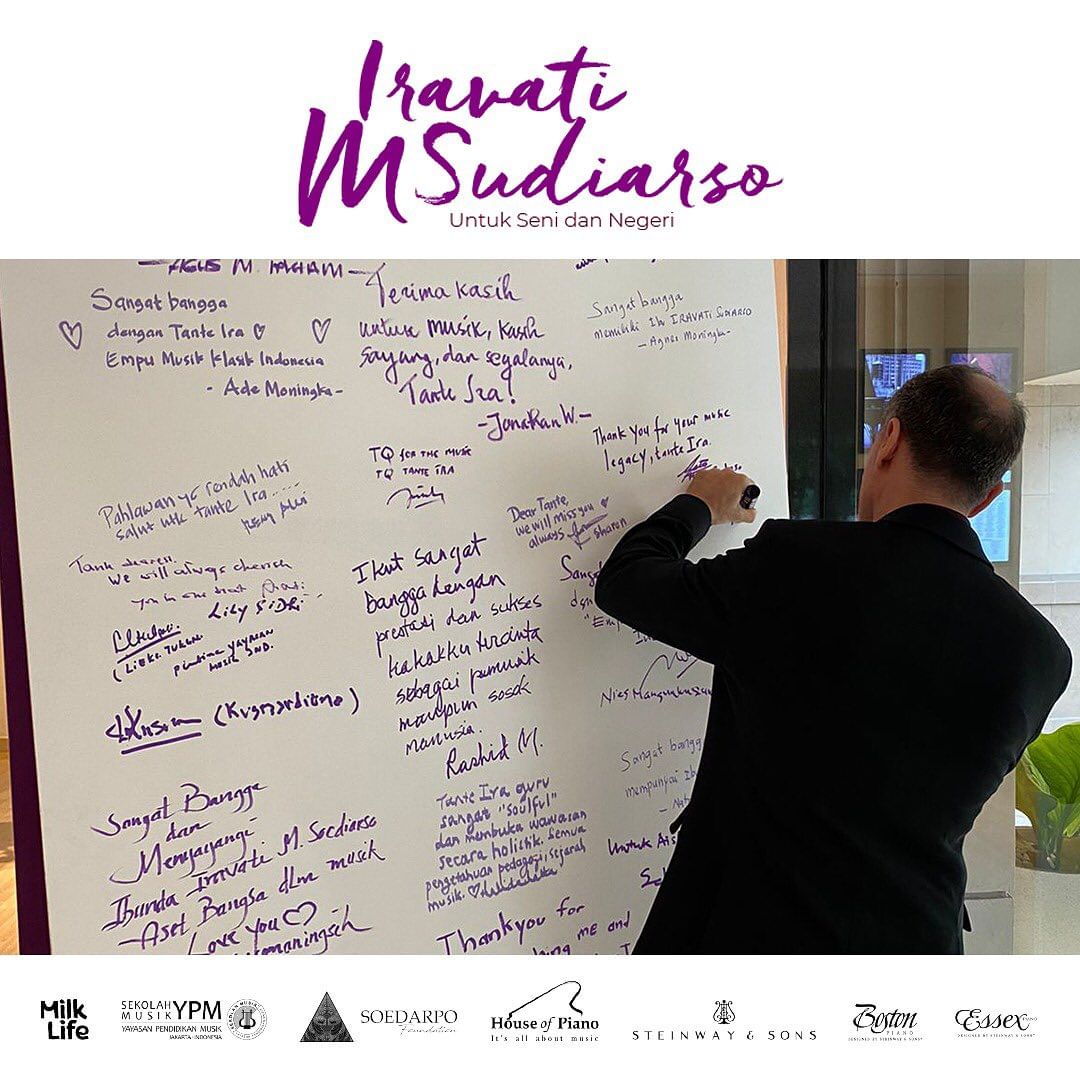 Iravati
M Sudiarso
Untuk Seni dan Negeri
Sangat bangga
dengan Tante Ira
Empu Musik Klasik Indonesia
- Ade Moningka -
Terima kasih
untuk musik, kasih
sayang, dan segalanya,
Tante Ira!
- Jonathan W. -
Sangat bangga
memiliki Ibu IRAVATI SUDIARSO
- Agnes Moningka -
Thank you for your music
legacy, tante Ira.
TQ for the music
TQ TANTE IRA
Pahlawan yg rendah hati
salut utk tante Ira.....
Dear Tante,
we will miss you
always
Sharon
We will always cherish
Lily Sidhi
Ikut sangat
bangga dengan
prestasi dan sukses
kakakku tercinta
sebagai pemusik
maupun sosok
manusia.
Rashid M.
Sang
dgn
"Emp
Nies
Sangat bangg
mempunyai Ib
Untuk Ais
Sangat Bangga
dan
Menyayangi
Ibunda Iravati M. Soediarso
- Aset Bangsa dlm musik
Love you
Tante Ira guru
sangat "soulful"
dan membuka wawasan
secara holistik. Semua
pengetahuan pedagogi, sejarah
musik.
Thankyou for
ME and
Milk
Life
SEKOLAH
MUSIK YPM
YAYASAN PENDIDIKAN MUSIK
JAKARTA-INDONESIA
SOEDARPO
Foundation
House of Piano
It's all about music
STEINWAY & SONS
Boston
PIANO
DESIGNED BY STEINWAY & SONS
Essex PIANO
DESIGNED BY STEINWAY & SONS